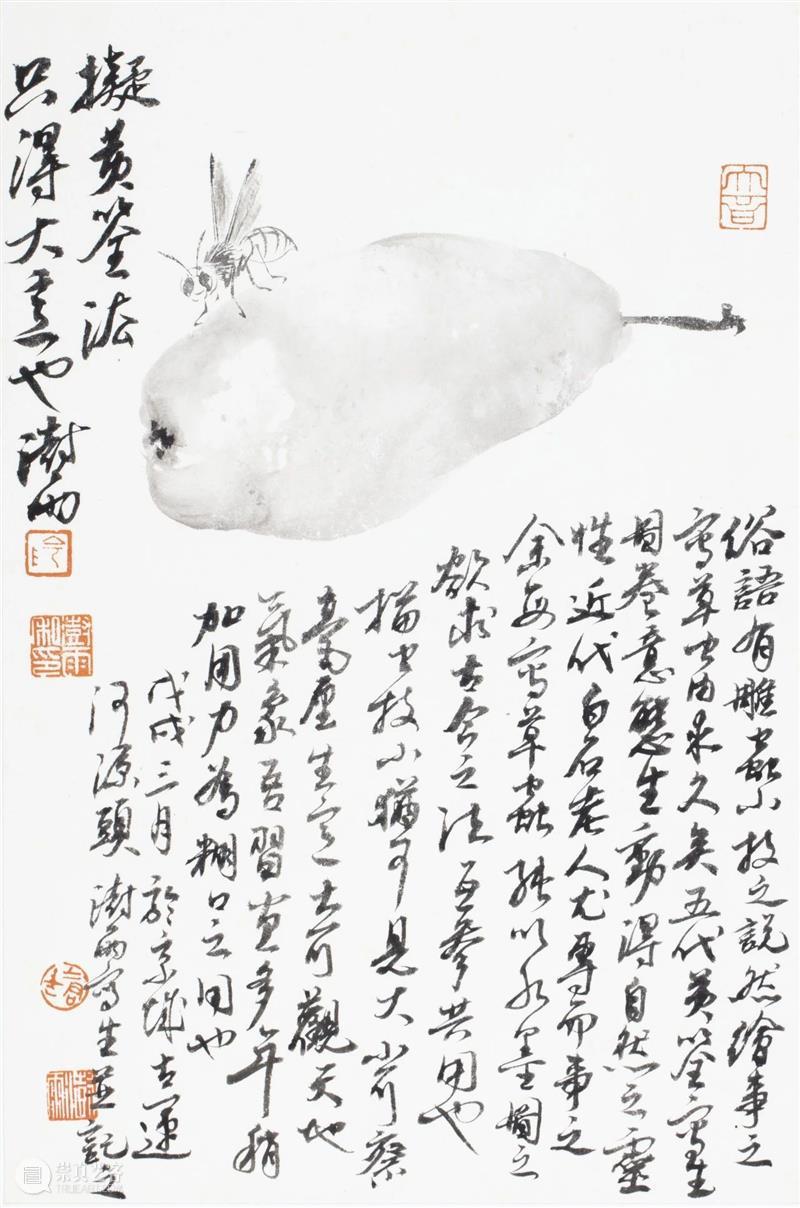 擬黃筌法
只得大意也澍雨
俗語有雕蟲小技之說然繪事之
寫草虫由來久矣五代黃筌寫生
圖卷意態生動得自然之靈
性近代白石老人尤專而事之
余每寫草蟲能以水墨圖之
欲求古今之法互參共用也
描虫技小猶可見大小可察
毫厘生意大可觀天地
氣象吾習画多年稍
加用力為糊口之用也
戊戌三月於京城古運
河源頭澍雨寫生並記之
崇真艺客
TRUEART.COM